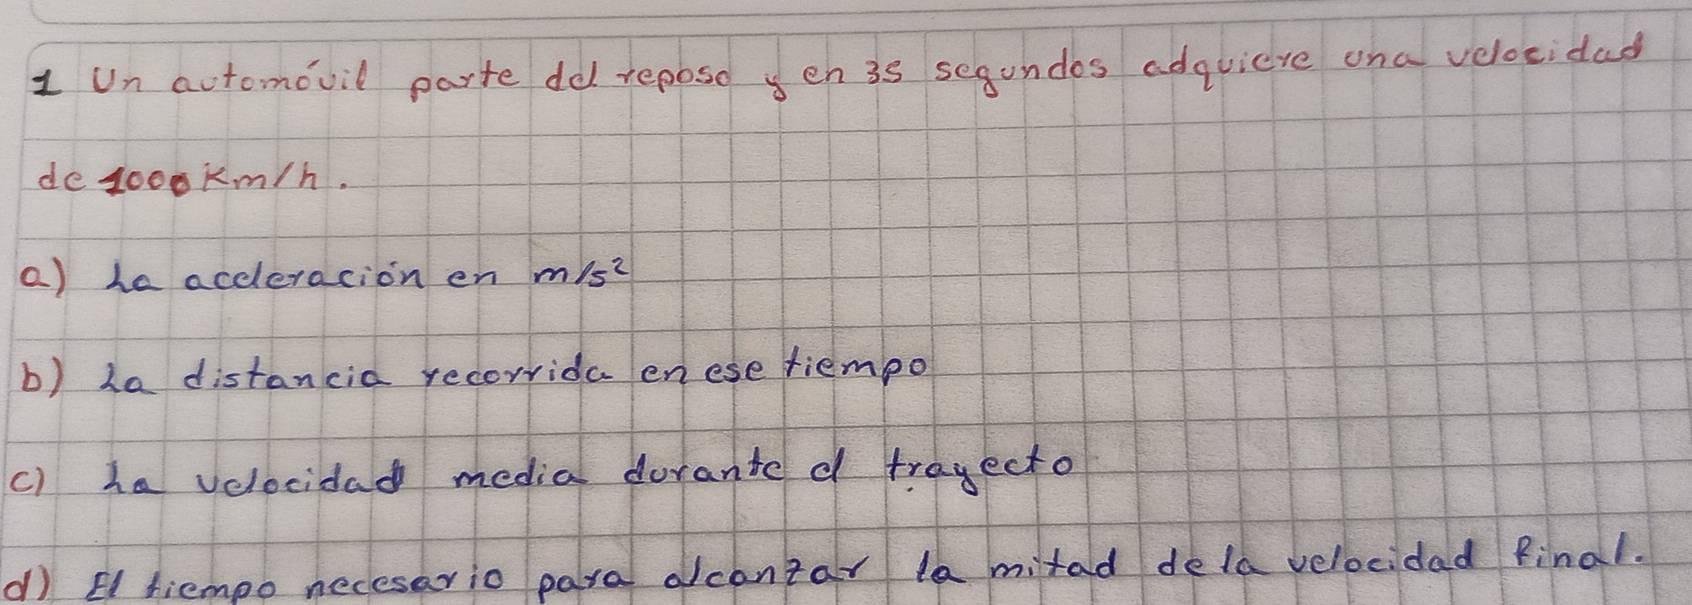 1 Un automóvil parte del reposo y en 35 segundos adquiere una velocidad
de 1000 Km/h.
a) La aceleración en m/s²
b) La distancia recorrida en ese tiempo
c) La velocidad media durante el trayecto
d) El tiempo necesario para alcanzar la mitad de la velocidad final.